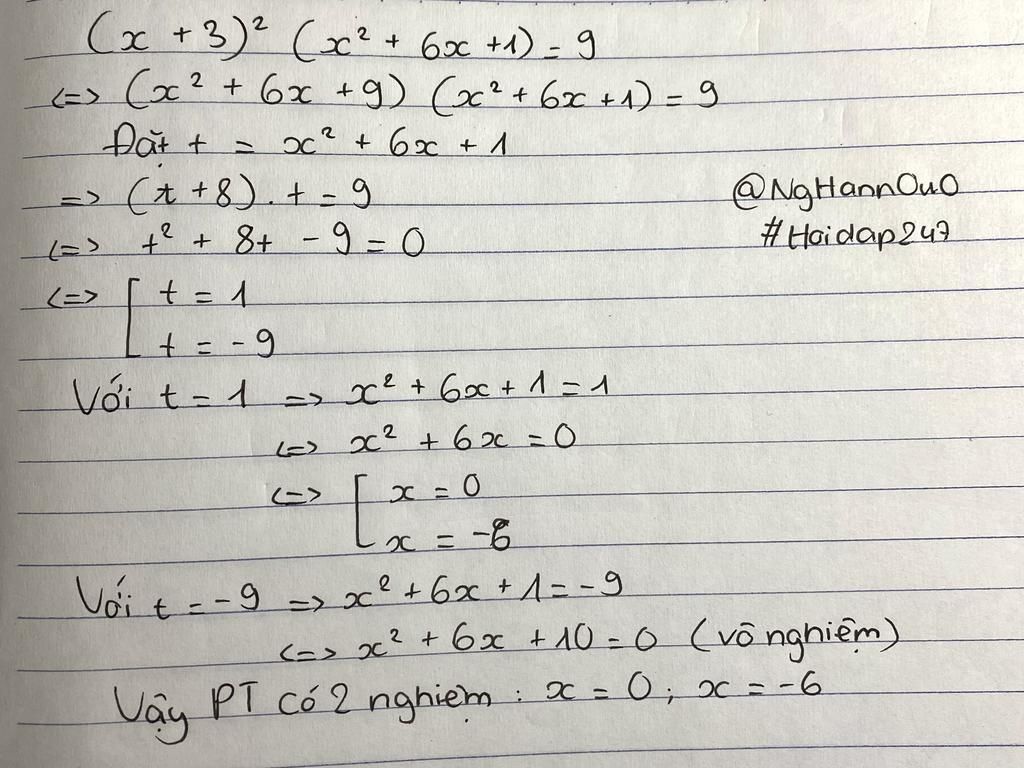 (x + 3)² (x² + 6x + 1) = 9
<=> (x² + 6x + 9) (x² + 6x + 1) = 9
Đặt t = x² + 6x + 1
=> (t + 8) . t = 9
@NgHannOuO
<=> t² + 8t - 9 = 0
#Hoidap247
<=> [ t = 1
t = -9
Với t = 1 => x² + 6x + 1 = 1
<=> x² + 6x = 0
<=> [ x = 0
x = -6
Với t = -9 => x² + 6x + 1 = -9
<=> x² + 6x + 10 = 0 (vô nghiệm)
Vậy PT có 2 nghiệm : x = 0 ; x = -6